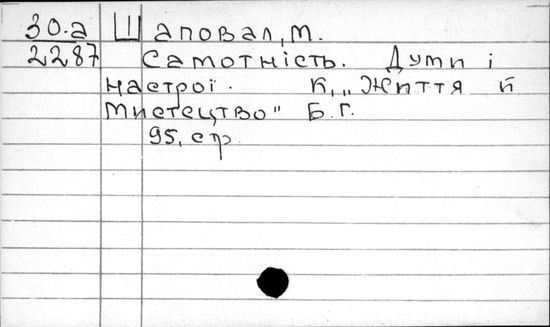 30.а Шаповал, М.
2287 Самотність. Думи і
настрої. К., "Життя й
Мистецтво" Б.Г.
95, стр.